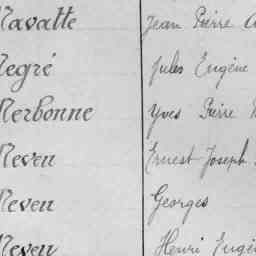 Navatte Jean Pierre
Negré Jules Eugène
Nerbonne Yves Pierre
Neven Ernest Joseph
Neven Georges
Neven Henri Eugè